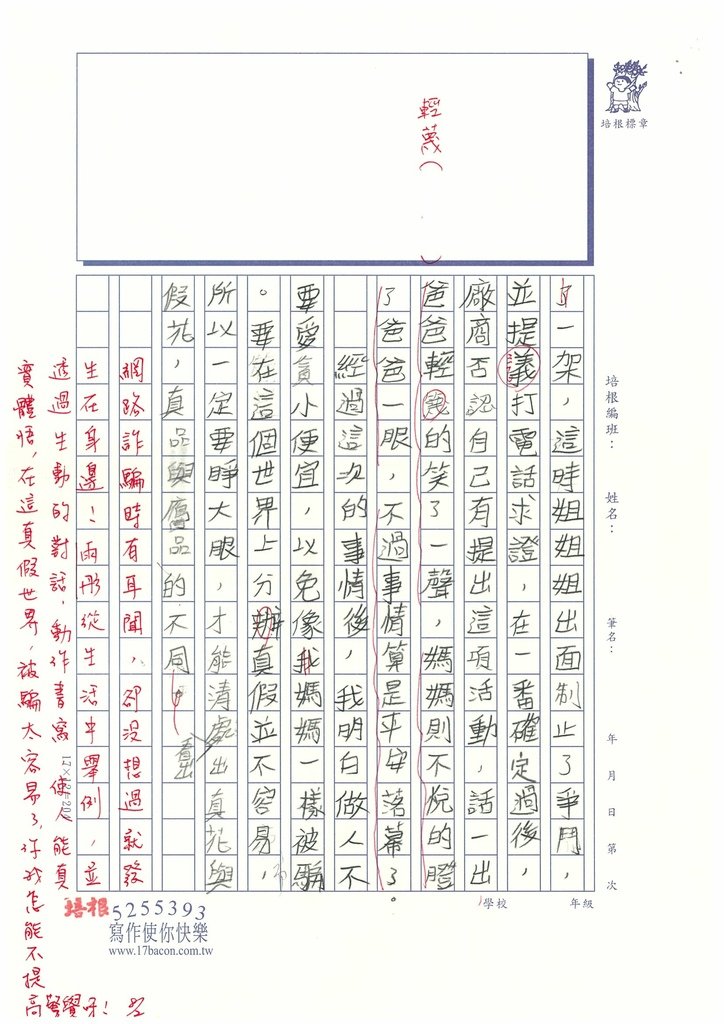 培根標章
輕蔑( )
培根編班：
姓名：
筆名：
年 月 日 第 次
學校
年級
一架，這時姐姐姐出面制止了爭鬥，
並提議打電話求證，在一番確定過後，
廠商否認自己有提出這項活動，話一出
爸爸輕蔑的笑了一聲，媽媽則不悅的瞪
了爸爸一眼，不過事情算是平安落幕了。
經過這次的事情後，我明白做人不
要愛貪小便宜，以免像我媽媽一樣被騙
。要在這個世界上分辦真假並不容易，
所以一定要睜大眼，才能清處出真花與
看出
假花，真品與贗品的不同。
網路詐騙時有耳聞，卻沒想過就發
生在身邊！雨彤從生活中舉例，並
透過生動的對話，動作書寫，使人能真
實體悟，在這真假世界，被騙太容易了，你我怎能不提
高警覺呀！
培根 5255393
寫作使你快樂
www.17bacon.com.tw